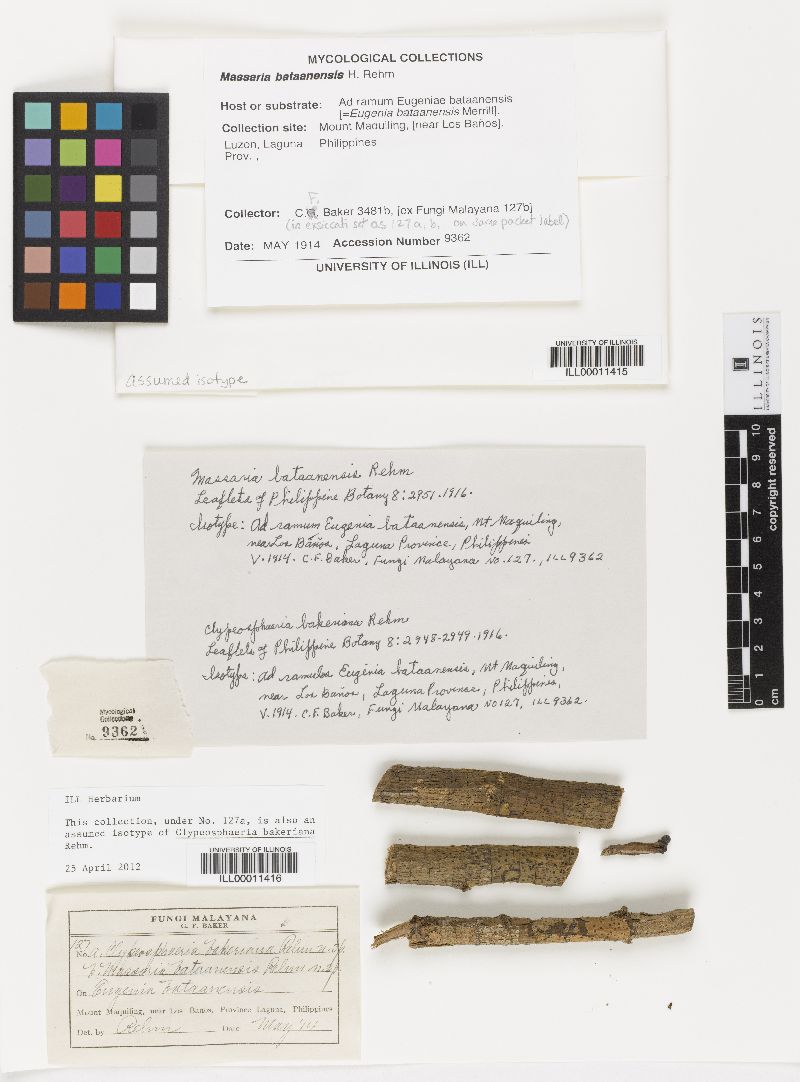 MYCOLOGICAL COLLECTIONS
Massaria bataanensis H. Rehm
Host or substrate: Ad ramum Eugeniae bataanensis
[=Eugenia bataanensis Merrill].
Collection site: Mount Maquiling, [near Los Baños].
Luzon, Laguna Philippines
Prov. ,
F.
Collector: C. Baker 3481b, [ex Fungi Malayana 127b]
(in exsiccati set as 127a, b, on same packet label)
Date: MAY 1914 Accession Number 9362
UNIVERSITY OF ILLINOIS (ILL)
UNIVERSITY OF ILLINOIS
ILL00011415
assumed isotype
ILLINOIS
copyright reserved
0 1 2 3 4 5 6 7 8 9 10
cm
Massaria bataanensis Rehm
Leaflets of Philippine Botany 8:2951.1916.
Isotype: Ad ramum Eugenia bataanensis, Mt Maquiling,
near Los Baños, Laguna Province, Philippines
V.1914. C.F. Baker, Fungi Malayana No.127., ILL9362
Clypeosphaeria bakeriana Rehm
Leaflets of Philippine Botany 8:2948-2949.1916.
Isotype: Ad ramulos Eugenia bataanensis, Mt Maquiling,
near Los Baños, Laguna Province, Philippines,
V.1914. C.F. Baker, Fungi Malayana No127, ILL9362.
Mycological
Collections
No. 9362
ILL Herbarium
This collection, under No. 127a, is also an
assumed isotype of Clypeosphaeria bakeriana
Rehm.
25 April 2012
UNIVERSITY OF ILLINOIS
ILL00011416
FUNGI MALAYANA
C. F. BAKER
127
No. a. Clypeosphaeria bakeriana Rehm n.sp.
b. Massaria bataanensis Rehm n.sp.
On Eugenia bataanensis
Mount Maquiling, near Los Baños, Province Laguna, Philippines
Det. by Rehm Date May '14